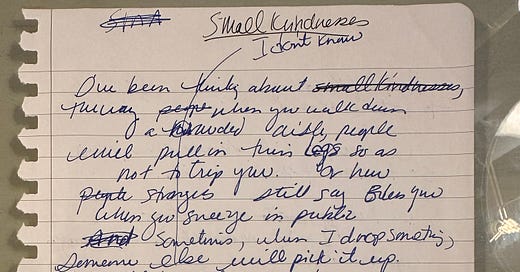 Small Kindnesses
I don't know
I've been thinking about small kindnesses,
the way when you walk down
a crowded aisle, people
will pull in their legs so as
not to trip you. Or how
people strangers still say Bless you
when you sneeze in public
And Sometimes, when I drop something,
someone else will pick it up.